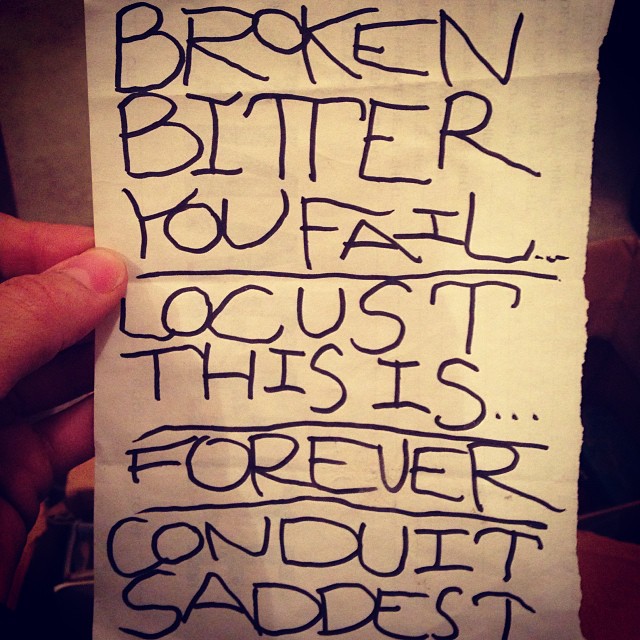 BROKEN
BITTER
YOU FAIL...
LOCUST
THIS IS...
FOREVER
CONDUIT
SADDEST